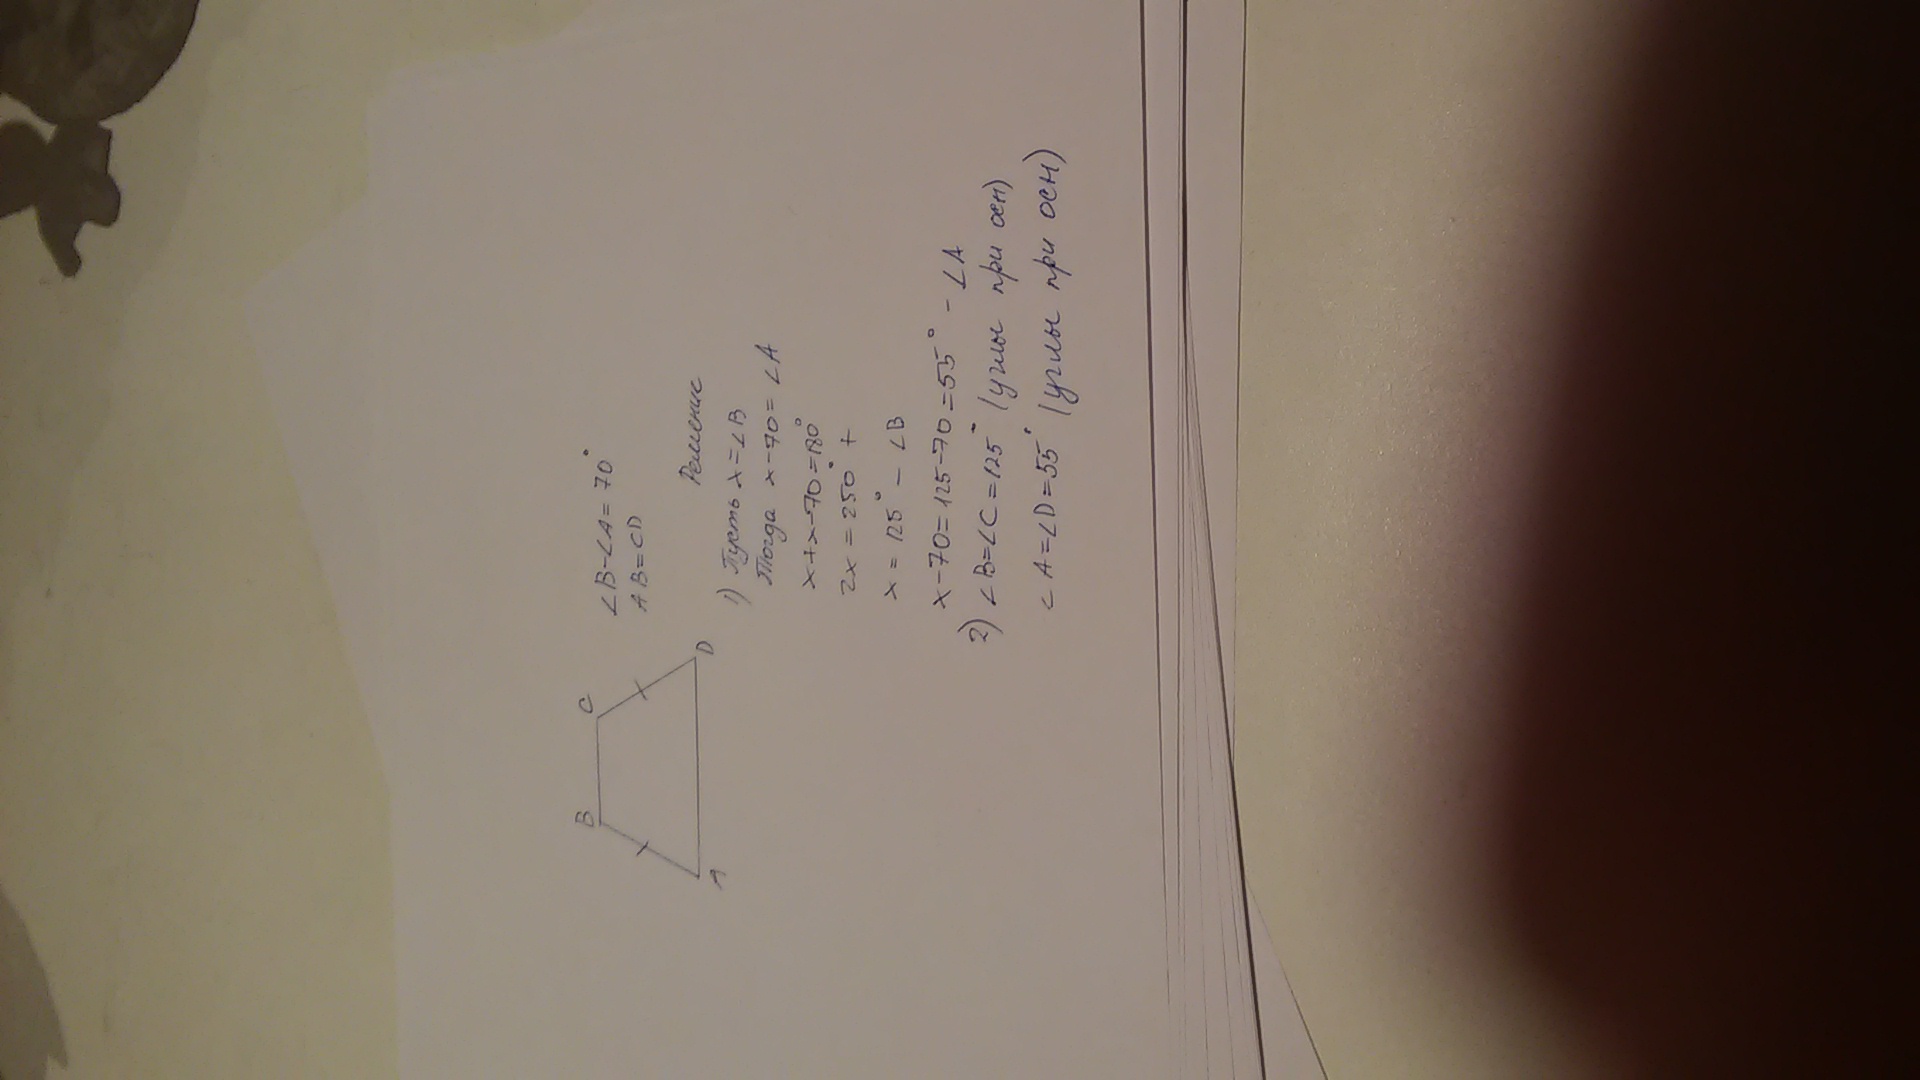 B C
A D
∠B-∠A=70°
AB=CD
Решение
1) Пусть x=∠B
Тогда x-70=∠A
x+x-70=180°
2x=250° +
x=125° - ∠B
x-70=125-70=55° - ∠A
2) ∠B=∠C=125° (углы при осн)
∠A=∠D=55° (углы при осн)